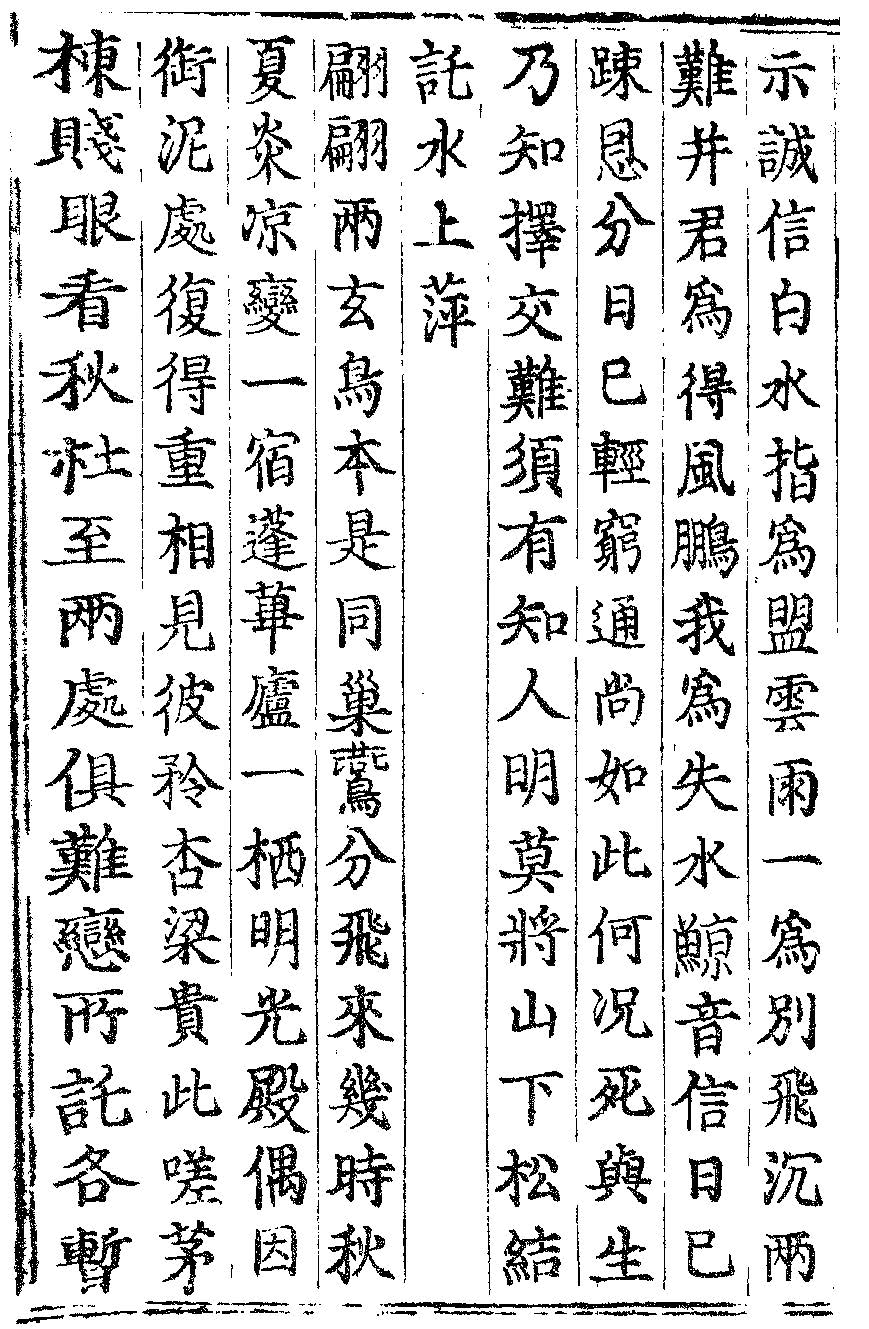 示誠信白水指爲盟雲雨一爲別飛沉兩
難并君爲得風鵬我爲失水鯨音信日已
踈恩分日已輕窮通尚如此何况死與生
乃知擇交難須有知人明莫將山下松結
託水上萍
翩翩兩玄鳥本是同巢鷰分飛來幾時秋
夏炎凉變一宿蓬蓽廬一栖明光殿偶因
銜泥處復得重相見彼矜杏梁貴此嗟茅
棟賤眼看秋社至兩處俱難戀所託各暫